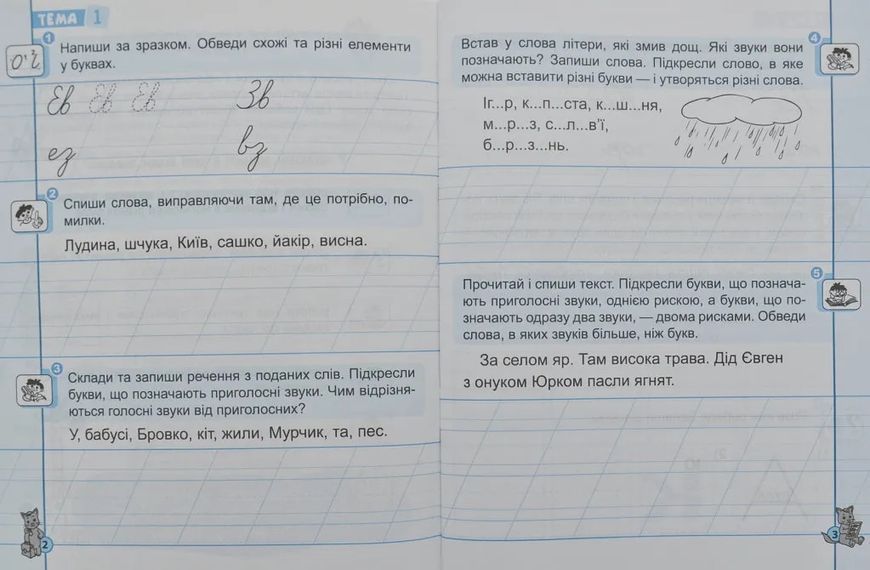 ТЕМА 1
1
Напиши за зразком. Обведи схожі та різні елементи
у буквах.
Єв Єв Єв Зв
ез вз
2
Спиши слова, виправляючи там, де це потрібно, по-
милки.
Лудина, шчука, Київ, сашко, йакір, висна.
3
Склади та запиши речення з поданих слів. Підкресли
букви, що позначають приголосні звуки. Чим відрізня-
ються голосні звуки від приголосних?
У, бабусі, Бровко, кіт, жили, Мурчик, та, пес.
2
4
Встав у слова літери, які змив дощ. Які звуки вони
позначають? Запиши слова. Підкресли слово, в яке
можна вставити різні букви — і утворяться різні слова.
Іг...р, к...п...ста, к...ш...ня,
м...р...з, с...л...в'ї,
б...р...з...нь.
5
Прочитай і спиши текст. Підкресли букви, що познача-
ють приголосні звуки, однією рискою, а букви, що по-
значають одразу два звуки, — двома рисками. Обведи
слова, в яких звуків більше, ніж букв.
За селом яр. Там висока трава. Дід Євген
з онуком Юрком пасли ягнят.
3